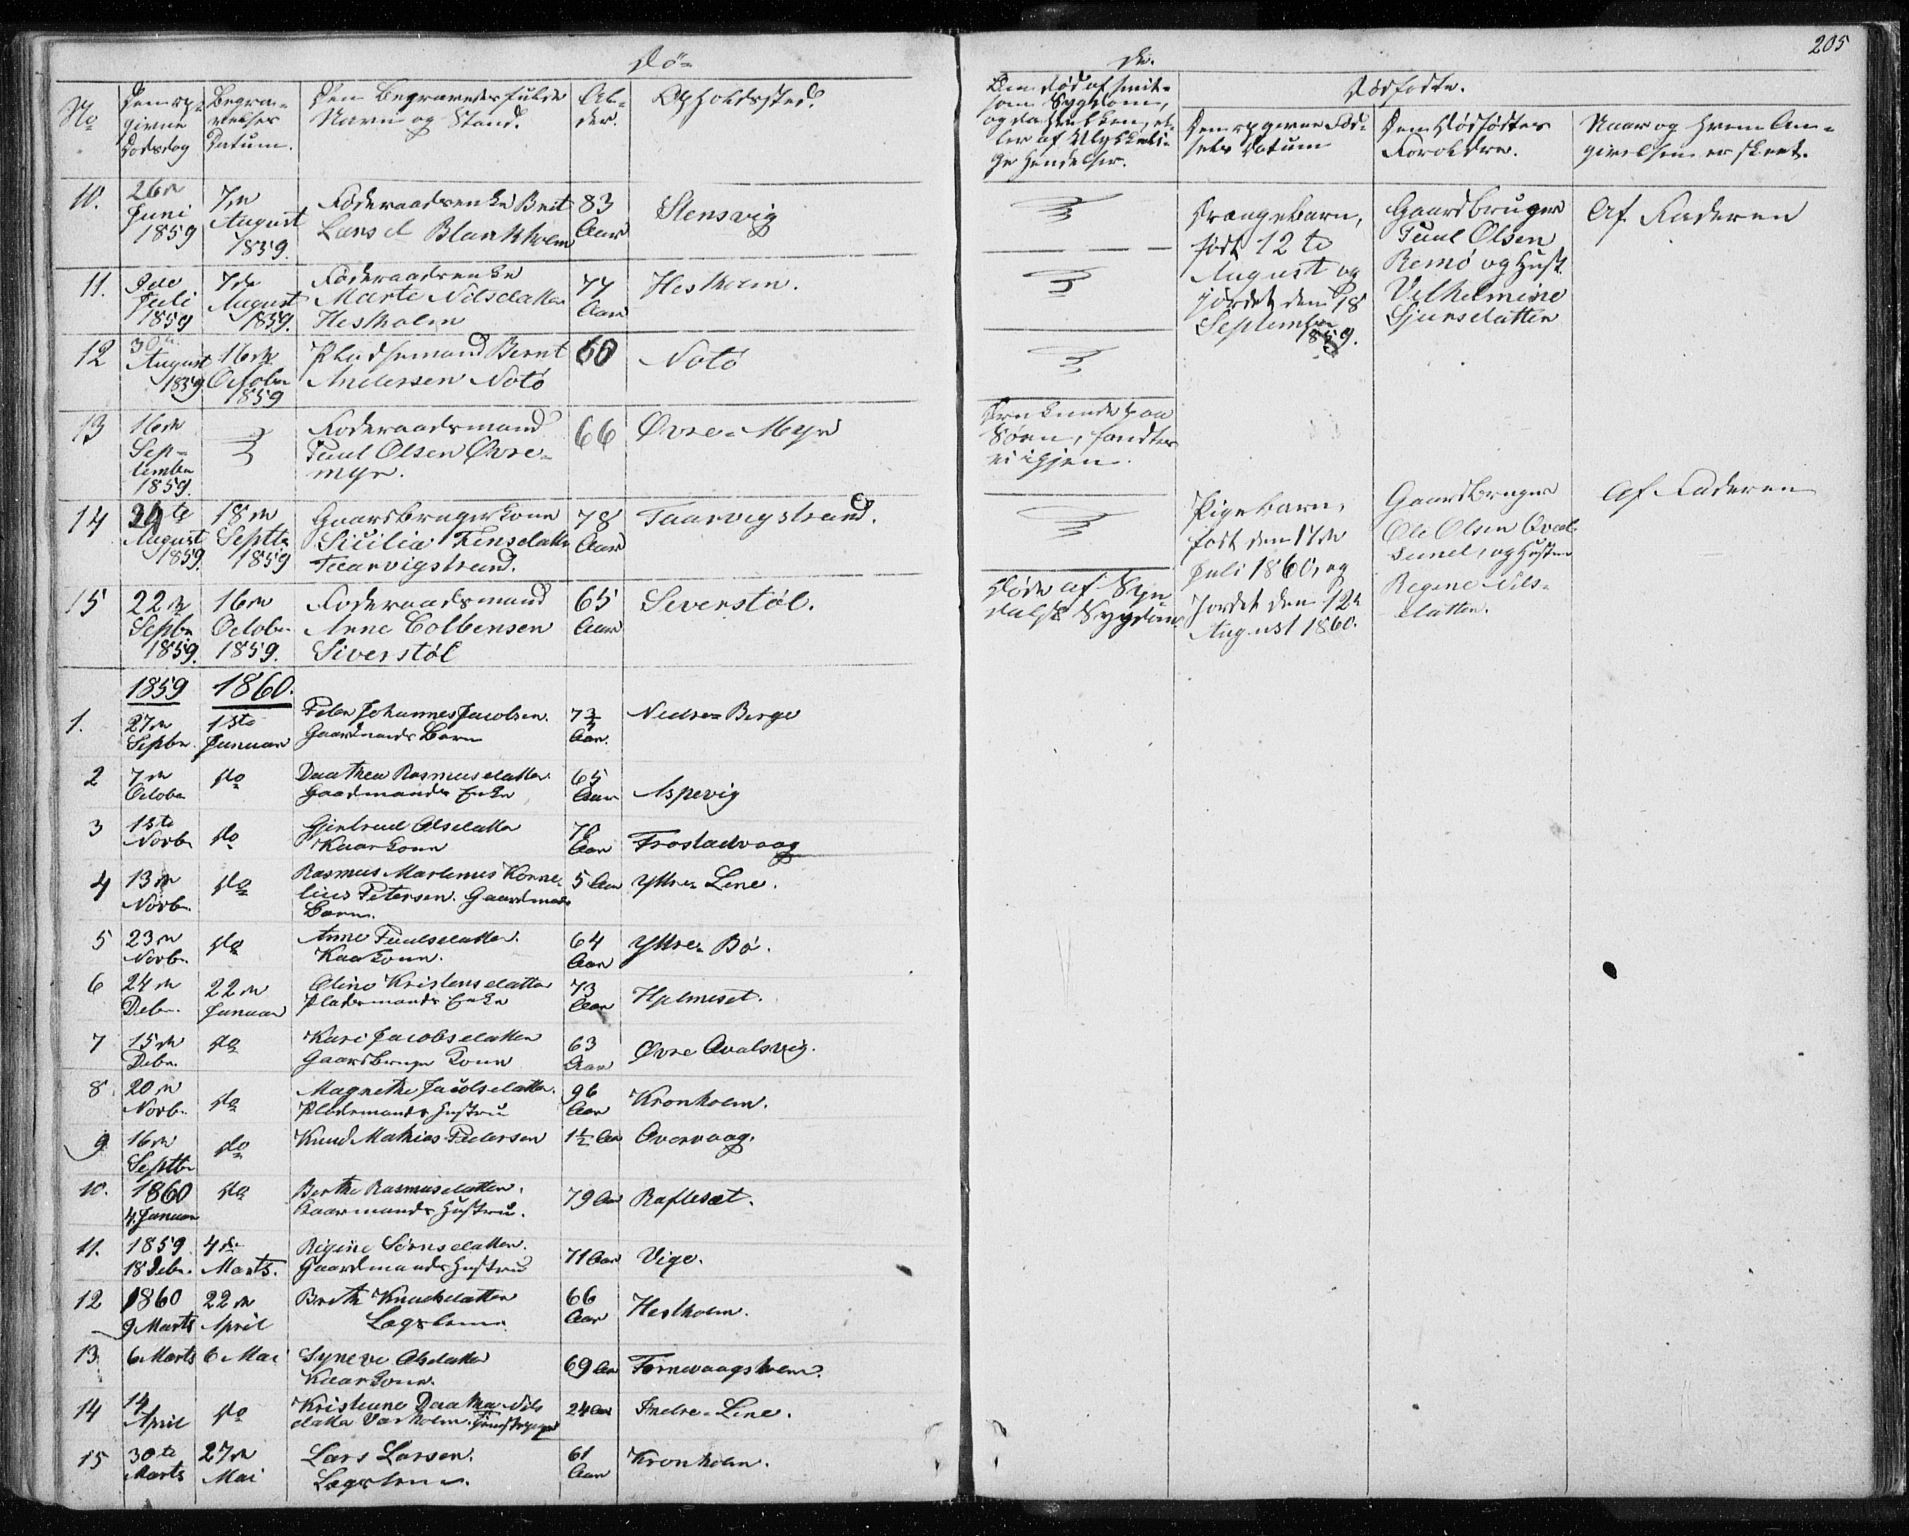 205
Dø-
No
Den opgivne Dødsdag
Begravelses Datum.
Den Begravedes fulde Navn og Stand.
Alder.
Opholdssted.
10.
26de Juni 1859
7de August 1859.
Føderaadsenke Brit Larsd Blankholm
83 Aar
Stensvig
11.
Juli 1859
7de August 1859.
Føderaadsenke Marte Nilsdatter Hestholm
77 Aar
Hestholm.
12
30te August 1859
16de October 1859
Pladsemand Bernt Andersen Notø
60
Notø
13
16de September 1859.
Føderaadsmand Poul Olsen Øvremyr.
66
Øvre-Myr
14
August 1859.
18de Septbr 1859
Gaardbrugerkone Sicilia Finsdatter Taarvigstrand.
78 Aar
Taarvigstrand.
15
22de Septbr 1859.
16de October 1859.
Føderaadsmand Arne Colbensen Siverstøl
65 Aar
Severstøl.
1859 1860.
1.
27de Septbr.
1ste Januar
Peder Johannes Jacobsen. Gaardmands Barn
Aar.
Nedre Berge
2
7de October
do
Daarthea Rasmusdatter. Gaardmands Enke
65 Aar
Aspevig
3
1ste Novbr
do
Gjertrud Olsdatter Kaarkone
Aar
Frostadvaag
4
13de Novbr.
do
Rasmus Martinus Kornelius Petersen. Gaardmands Barn.
5 Aar
Yttre Line.
5
23de Novbr.
do
Anne Paulsdatter. Kaarkone.
64 Aar
Yttre Bø.
6
24de Debr.
22de Januar
Oline Kristensdatter Pladsmands Enke
73 Aar
Hjelmeset.
7
15de Debr.
do
Kari Jacobsdatter Gaardbruger Kone
63 Aar
Øvre Qvalsvig.
8
20de Novbr.
do
Magrethe Jacobsdatter. Pladsmands Hustru
96 Aar
Kronholm.
9
16de Septbr
do
Knud Mathias Pedersen
1½ Aar
Overvaag.
10.
1860 4. Januar
do
Berthe Rasmusdatter. Kaarmands Hustru.
79 Aar
Raffleset.
11.
1859. 18 Debr.
4de Marts.
Regine Sørnsdatter. Gaardmands Hustru
71 Aar
Vige.
12
1860 9 Marts
22de April
Brithe Knudsdatter Lægslem
66 Aar
Hestholm.
13
6 Marts
6 Mai
Syneve Olsdatter Kaarkone.
69 Aar
Tornevaagsholm.
14
14 April
do
Kristiane Daathea Nilsdatter Varholm.
24 Aar
Indre-Line.
15
30te Marts
27de Mai
Lars Larsen. Lægslem.
61 Aar
Kronholm.
de.
Om død af smitsom Sygdom, og da hvilken, eller af ulykkelige Hendelser.
Dødfødte.
Den opgivne Fødsels Datum
Den Dødfødtes Forældre.
Naar og hvem Angivelsen er skeet.
Drængebarn, født 12te August og jordet den 18 September 1859.
Gaardbruger Poul Olsen Remø og Hust. Vilhelmine Sjursdatter
Af Faderen
Drunknede paa Søen, fandtes ei igjen.
Pigebarn, født den 17de Juli 1860, og Jordet den 12te August 1860.
Gaardbruger Ole Olsen Qvalsund, og Hustru Regine Nilsdatter.
Af Faderen
Døde af Sygdom